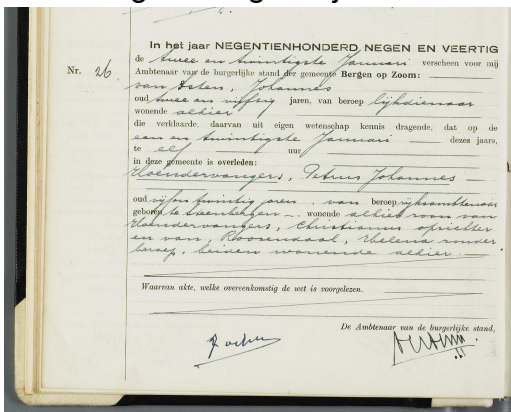 In het jaar NEGENTIENHONDERD NEGEN EN VEERTIG
de twee en twintigste Januari verscheen voor mij
Nr. 26. Ambtenaar van de burgerlijke stand der gemeente Bergen op Zoom:
van Asten, Johannes
oud twee en vijftig jaren, van beroep lijkdienaar
wonende alhier
die verklaarde, daarvan uit eigen wetenschap kennis dragende, dat op de
een en twintigste Januari dezes jaars,
te elf uur
in deze gemeente is overleden:
Hoendervangers, Petrus Johannes
oud vijf en twintig jaren, van beroep rijksambtenaar
geboren te Steenbergen, wonende alhier zoon van
Hoendervangers, Christianus opzichter
en van, Roosendaal, Helena zonder
beroep, beiden wonende alhier.
Waarvan akte, welke overeenkomstig de wet is voorgelezen.
De Ambtenaar van de burgerlijke stand,